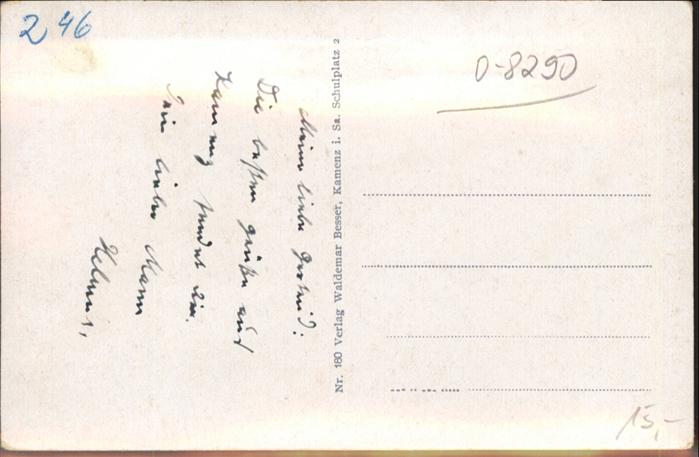 2 46
Meine liebe Gertrud!
Die besten Grüße aus
Kamenz sendet Dir
Dein lieber Mann
Helmut,
Nr. 180 Verlag Waldemar Besser, Kamenz i. Sa. Schulplatz 2
O-8290
15,-